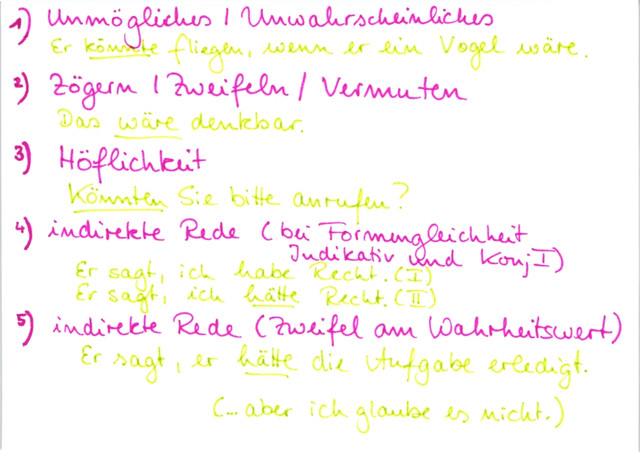 1) Unmögliches / Unwahrscheinliches
Er könnte fliegen, wenn er ein Vogel wäre.
2) Zögern / Zweifeln / Vermuten
Das wäre denkbar.
3) Höflichkeit
Könnten Sie bitte anrufen?
4) indirekte Rede (bei Formengleichheit
Indikativ und Konj I)
Er sagt, ich habe Recht. (I)
Er sagt, ich hätte Recht. (II)
5) indirekte Rede (Zweifel am Wahrheitswert)
Er sagt, er hätte die Aufgabe erledigt.
(... aber ich glaube es nicht.)